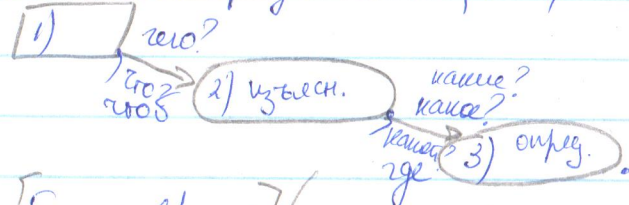 1)
чего?
что
чтоб
2) изъясн.
какие?
какое?
какой
где
3) опред.